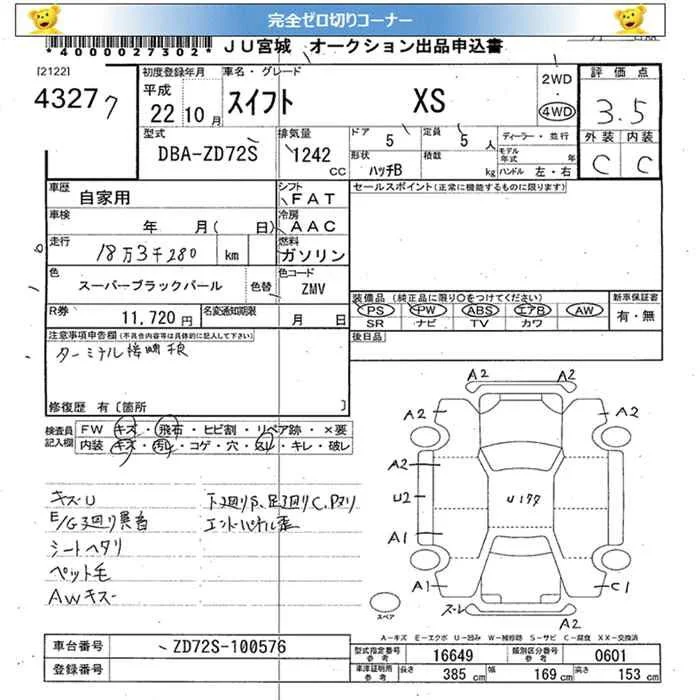 完全ゼロ切りコーナー
*4000027302*
JU宮城 オークション出品申込書
[2122]
43277
初度登録年月
平成 22 10月
車名・グレード
スイフト XS
2WD
4WD
評価点
3.5
外装 内装
C C
型式
DBA-ZD72S
排気量
1242 CC
ドア 5
定員 5 人
形状 ハッチB
積数 kg
ディーラー・並行
モデル年式 年
ハンドル 左・右
車歴
自家用
シフト
FAT
セールスポイント(正常に機能するものに限ります)
車検
年 月( 日)
冷房
AAC
走行
18万3千280 km
燃料
ガソリン
色
スーパーブラックパール
色替
色コード
ZMV
R券
11,720円
名変通知期限
月 日
装備品 (純正品に限り○をつけてください)
PS PW ABS エアB AW
SR ナビ TV カワ
新車保証書
有・無
後日品
注意事項申告欄(不具合内容等は具体的に記入して下さい)
ターミナル接触不良
修復歴 有〔箇所 〕
検査員記入欄
FW キズ・飛石・ヒビ割・リペア跡・×要
内装 キズ・汚レ・コゲ・穴・スレ・キレ・破レ
キズ・U
E/G廻り異音
シートヘタリ
ペット毛
AWキズ
下廻りS、足廻りC、Pスリ
エンドパネル歪
A2 A2
A2 A2
A2
U2 U177
A1
A1 C1
スレ A2
スペア
A-キズ E-エクボ U-凹み W-補修跡 S-サビ C-腐食 XX-交換済
車台番号
ZD72S-100576
登録番号
型式指定番号 参考
16649
類別区分番号 参考
0601
車庫証明用 参考
長さ 385 cm
幅 169 cm
高さ 153 cm